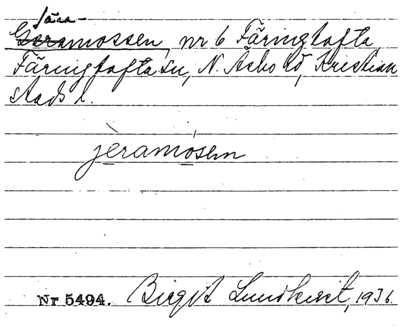 Jära-
Geramossen, nr 6 Färingtofta,
Färingtofta sn, N. Åsbo hd, Kristian
stads l.
jèramósen
Nr 5494. Birgit Lundkvist, 1936